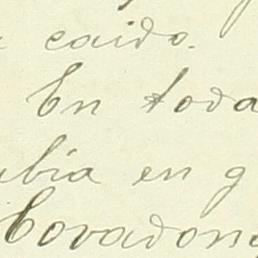 caido.
En toda
ubia en g
Covadong